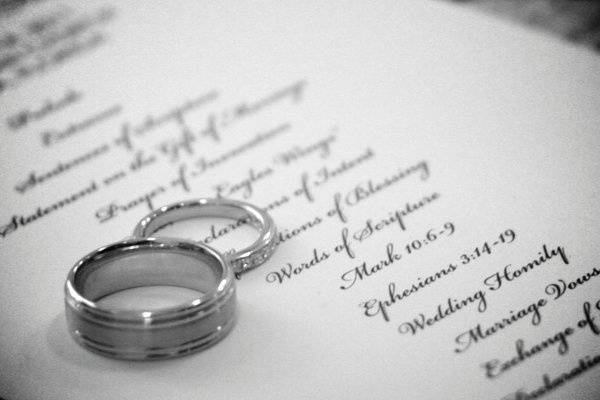 Prelude
Entrance
Sentences of Scripture
Statement on the Gift of Marriage
Prayer of Invocation
Eagles Wings"
of Intent
of Blessing
Words of Scripture
Mark 10:6-9
Ephesians 3:14-19
Wedding Homily
Marriage Vows
Exchange of